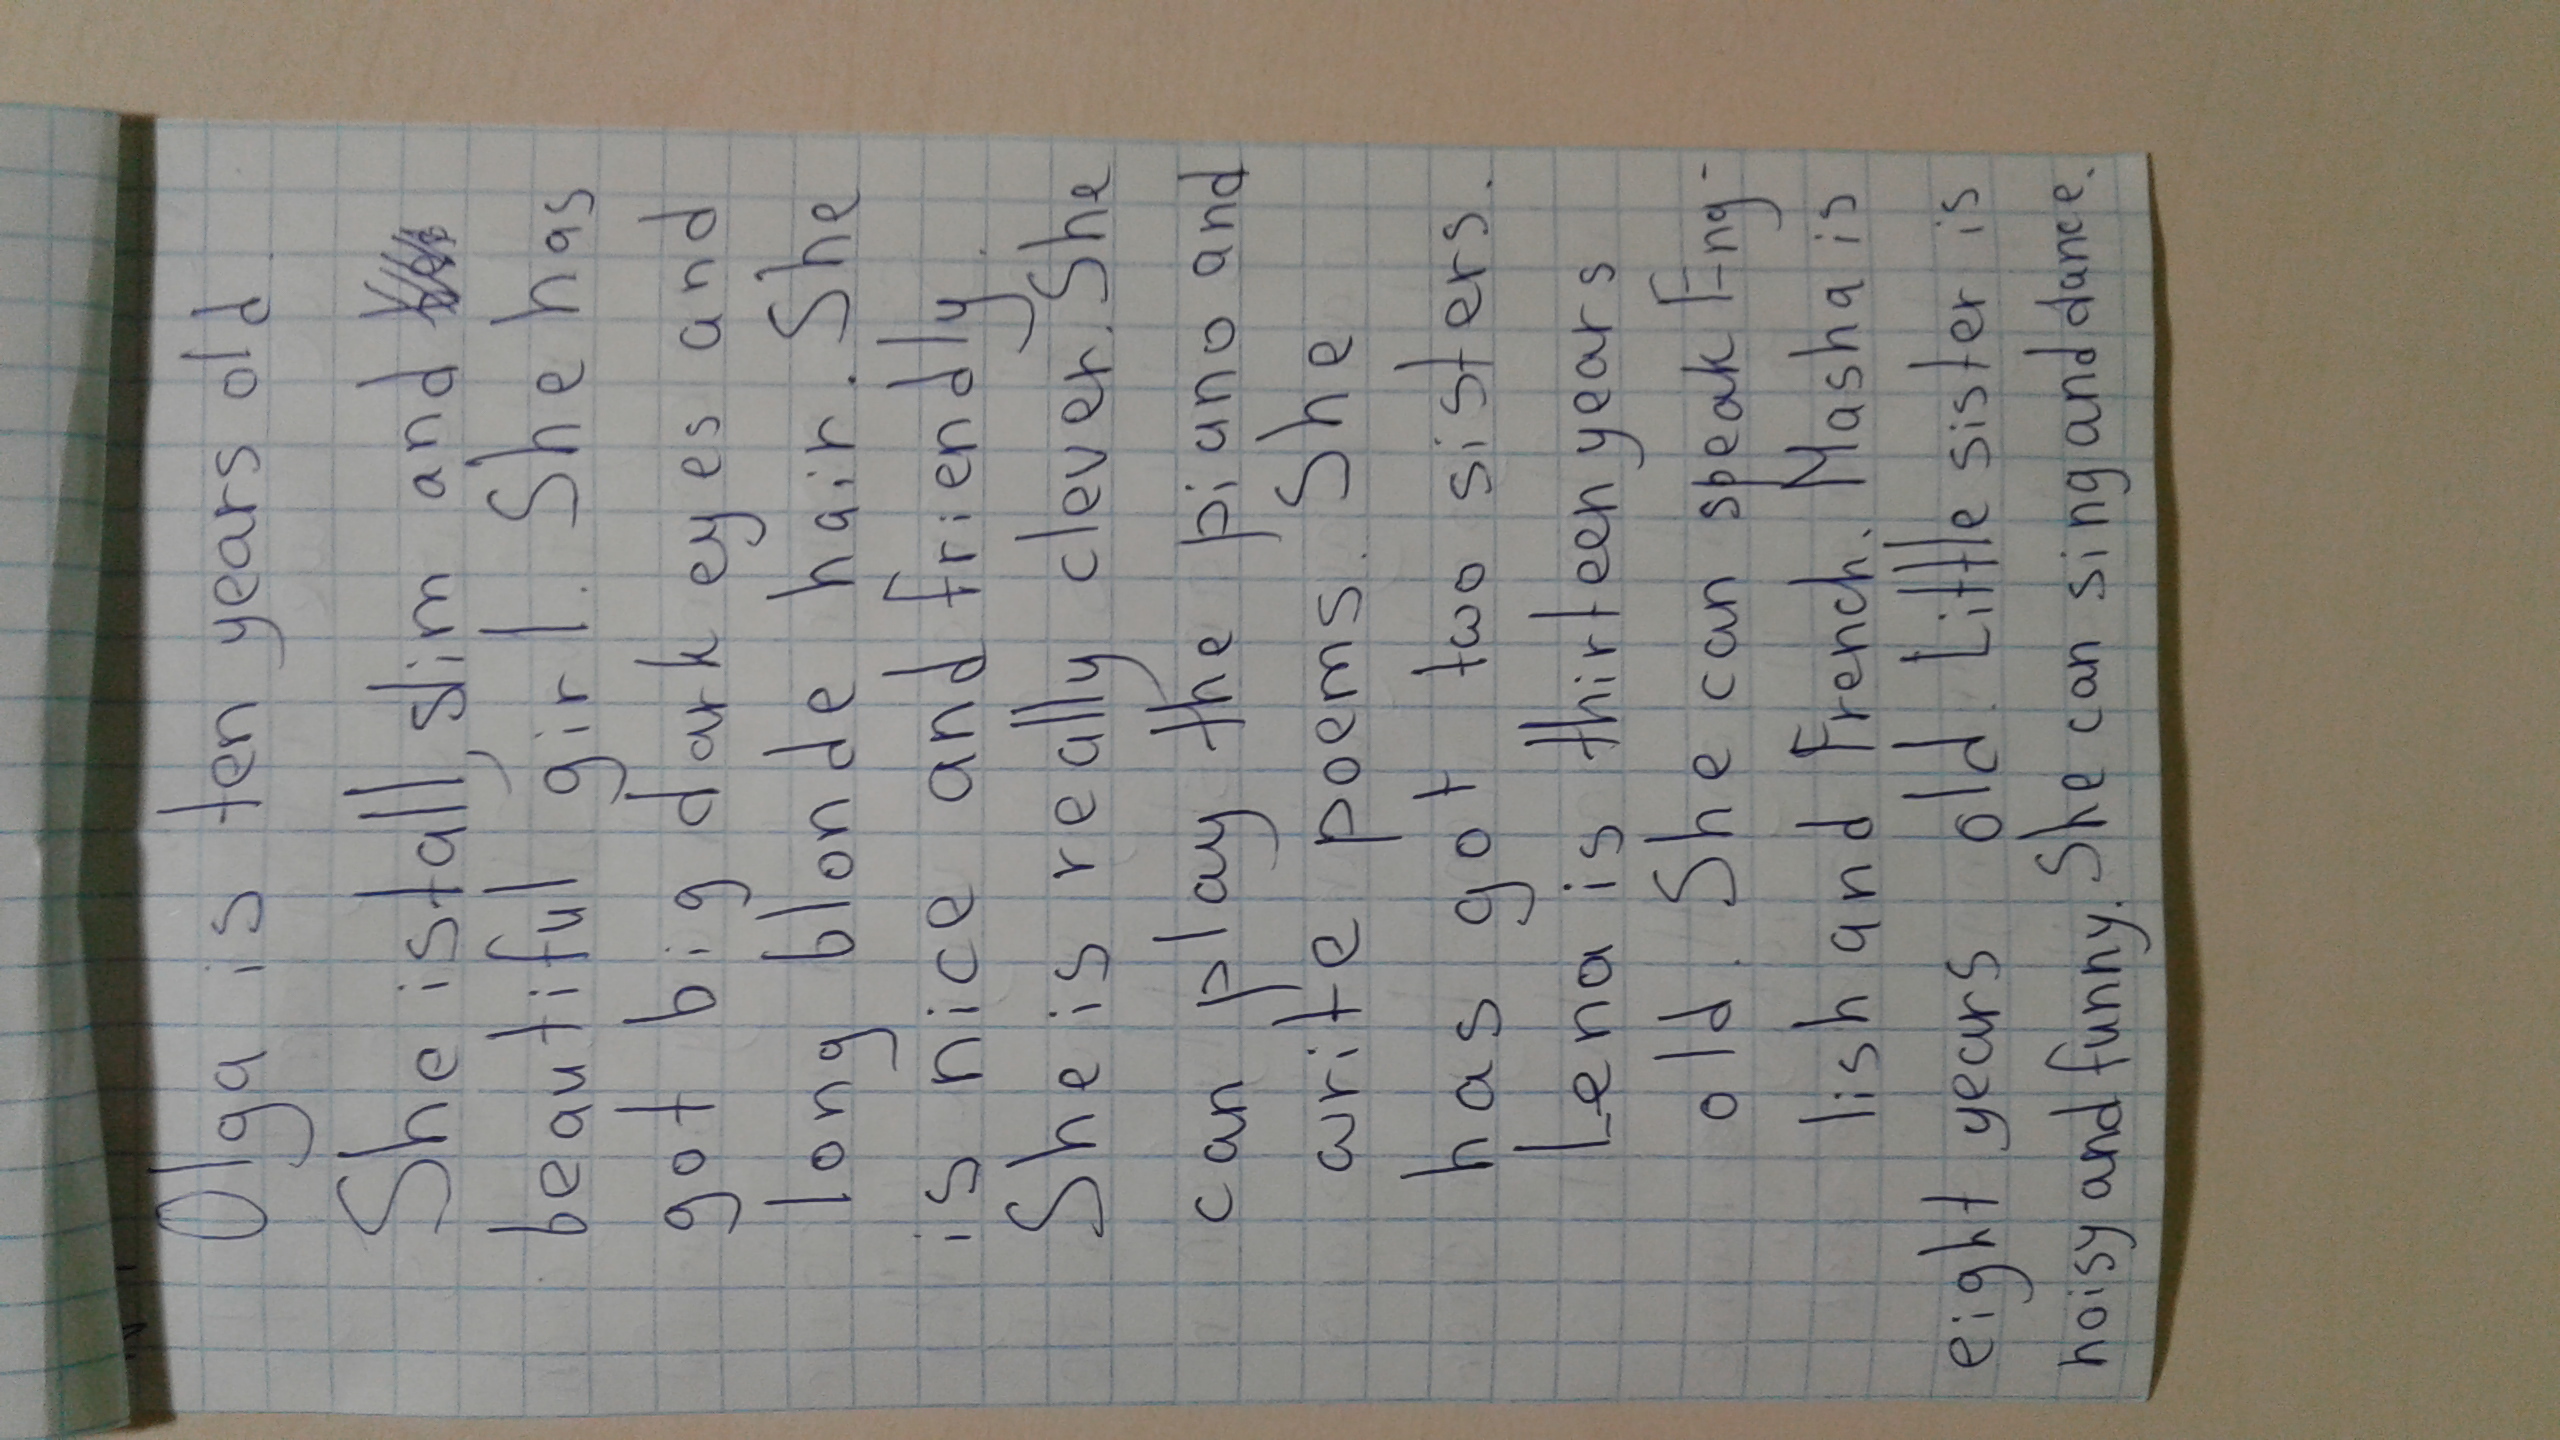 Olga is ten years old.
She is tall, slim and
beautiful girl. She has
got big dark eyes and
long blonde hair. She
is nice and friendly.
She is really clever. She
can play the piano and
write poems. She
has got two sisters.
Lena is thirteen years
old. She can speak Eng-
lish and French. Masha is
eight years old. Little sister is
noisy and funny. She can sing and dance.